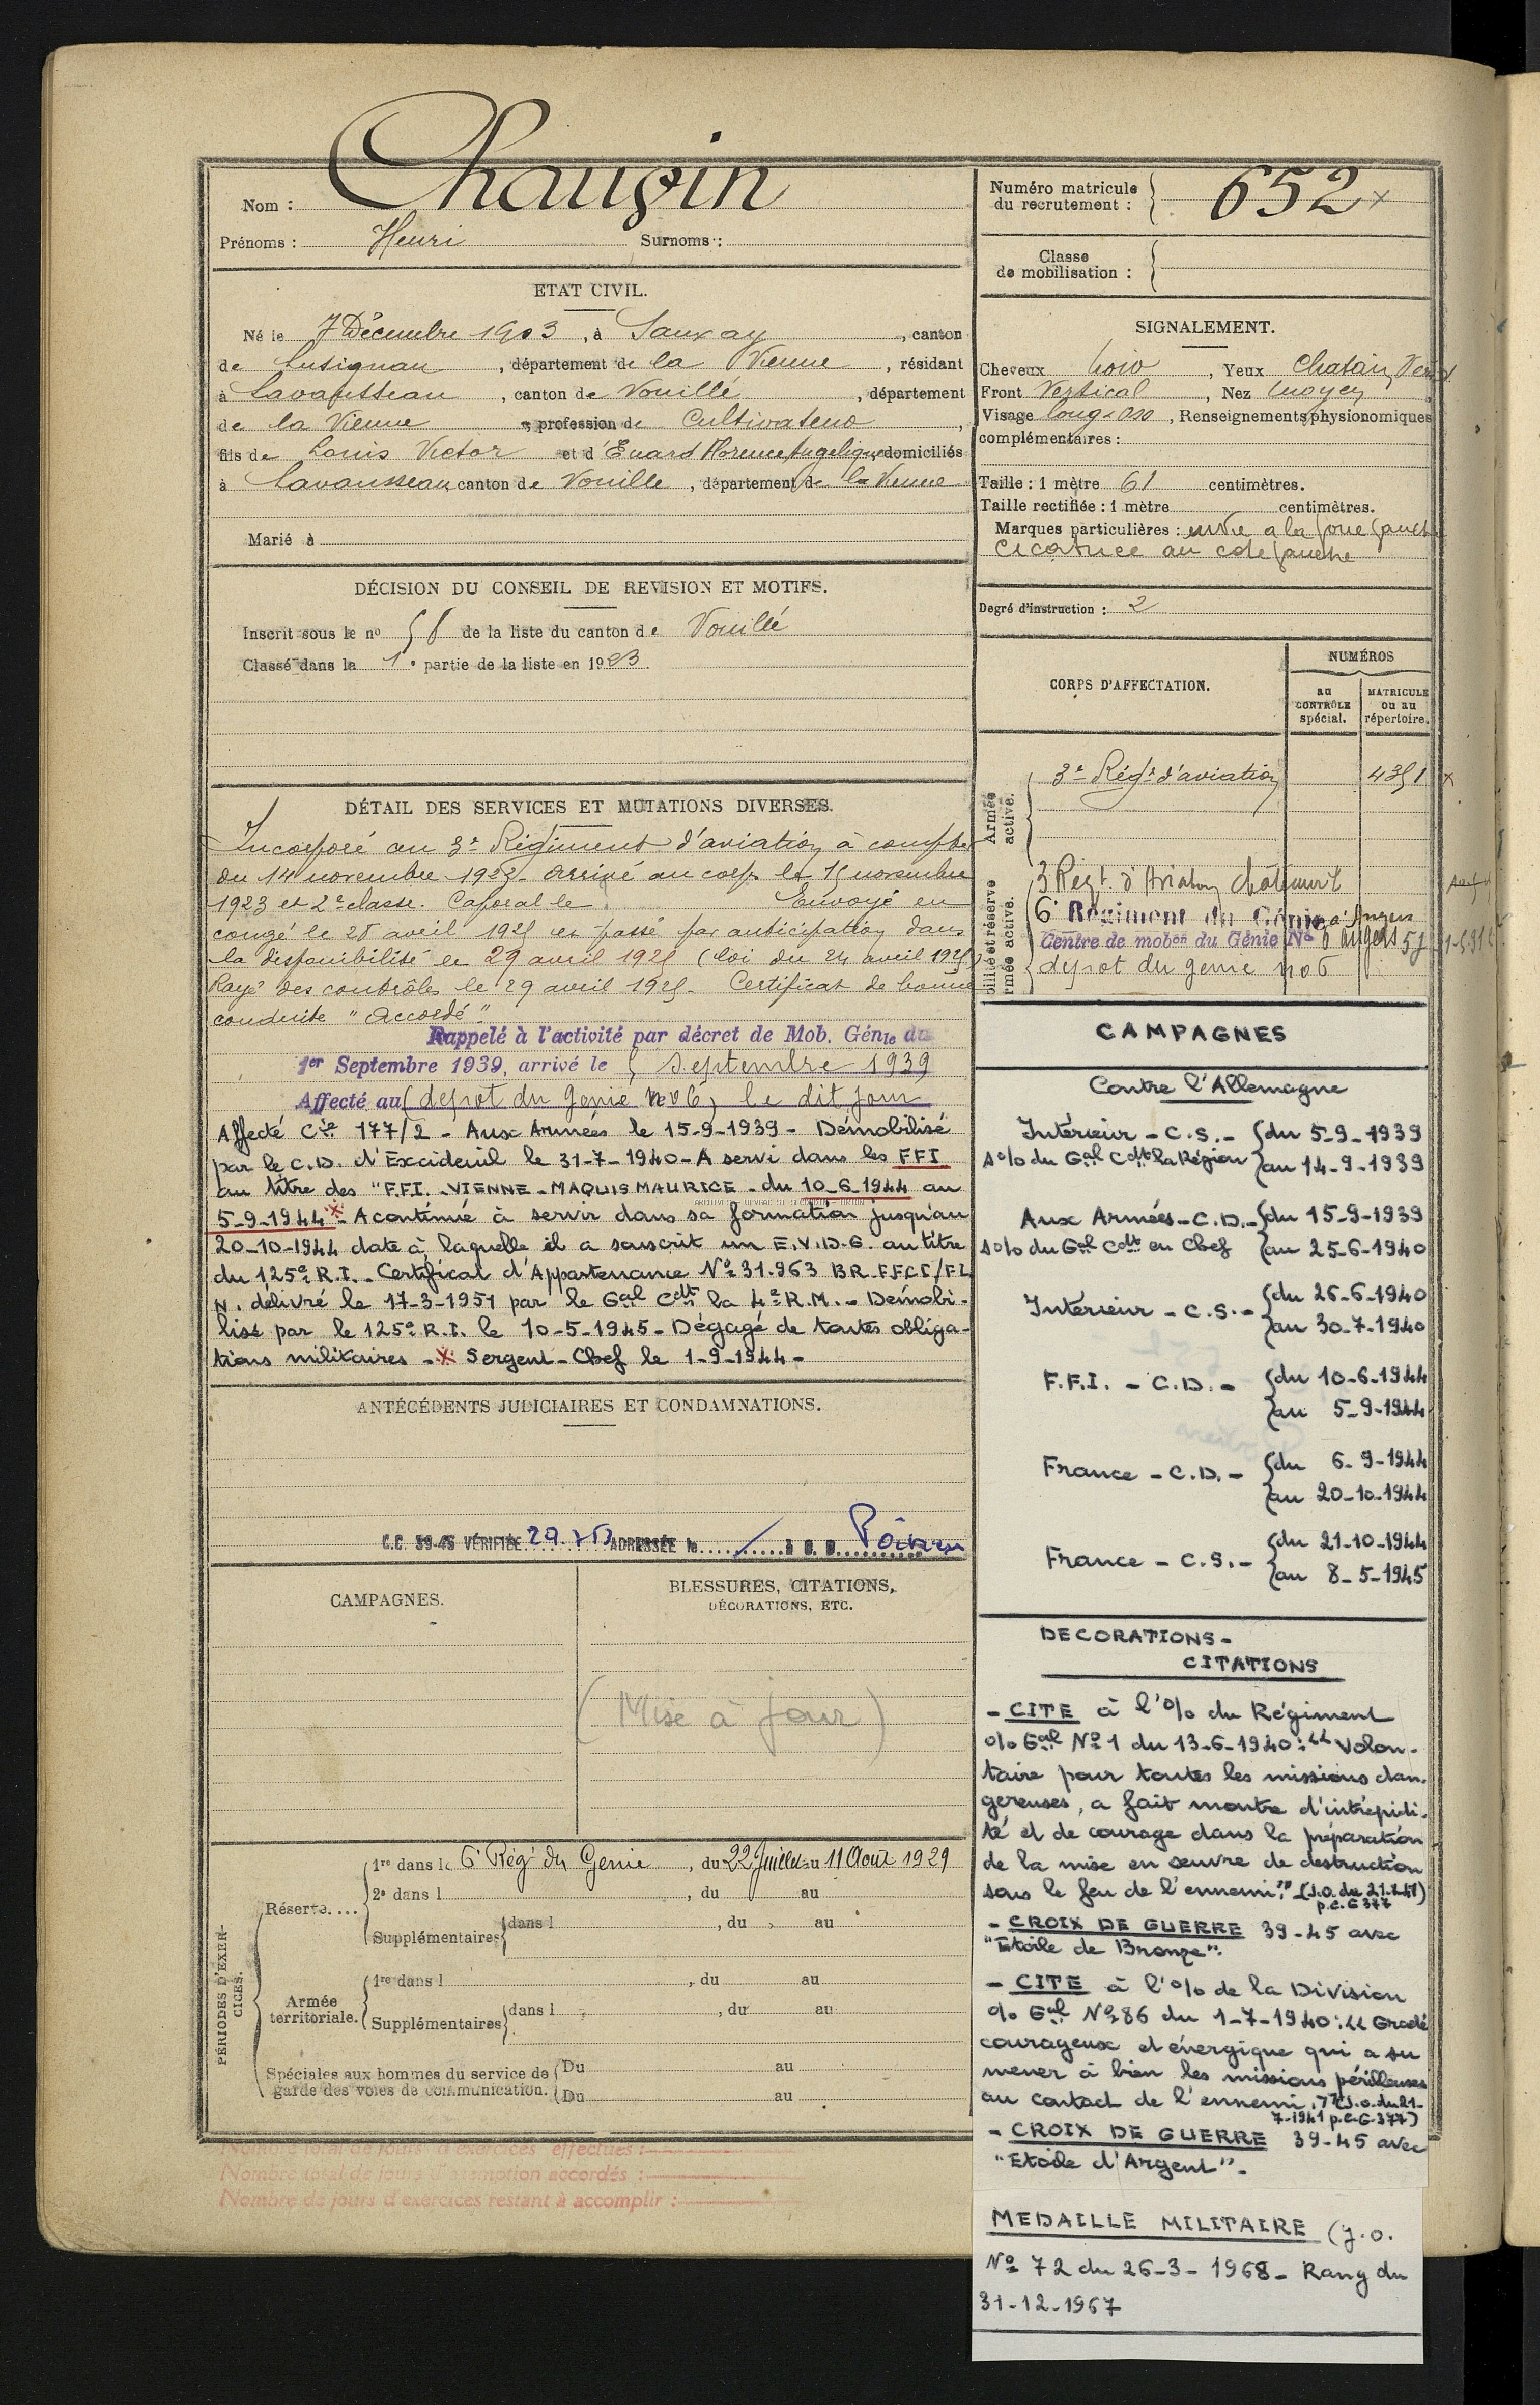 Nom : Chaugin
Prénoms : Henri Surnoms :
ETAT CIVIL.
Né le 7 Décembre 1903, à Sanxay, canton
de Lusignan, département de la Vienne, résidant
à Lavausseau, canton de Vouillé, département
de la Vienne, profession de Cultivateur,
fils de Louis Victor et d'Enard Florence Angelique domiciliés
à Lavausseau, canton de Vouillé, département de la Vienne
Marié à
DÉCISION DU CONSEIL DE REVISION ET MOTIFS.
Inscrit sous le nº 58 de la liste du canton de Vouillé
Classé dans la 1e partie de la liste en 1923
DÉTAIL DES SERVICES ET MUTATIONS DIVERSES.
Incorporé au 3e Régiment d'aviation à compter
du 14 novembre 1923. Arrivé au corps le 15 novembre
1923 et 2e classe. Caporal le Envoyé en
congé le 28 avril 1925 et passé par anticipation dans
la disponibilité le 29 avril 1925 (loi du 24 avril 1925)
Rayé des contrôles le 29 avril 1925. Certificat de bonne
conduite "Accordé"
Rappelé à l'activité par décret de Mob. Génle du
1er Septembre 1939, arrivé le 5 septembre 1939
Affecté au (depot du Génie nº 6) le dit jour
Affecté Cie 177/2 - Aux Armées le 15-9-1939 - Démobilisé
par le C.D. d'Excideuil le 31-7-1940 - A servi dans les FFI
au titre des "F.F.I. - VIENNE - MAQUIS MAURICE - du 10-6-1944 au
5-9-1944 * - A continué à servir dans sa formation jusqu'au
20-10-1944 date à laquelle il a souscrit un E.V.D.G. au titre
du 125e R.I. - Certificat d'Appartenance Nº 31.963 BR.FFCI/FL
N. délivré le 17-3-1951 par le Gal Cdt la 4e R.M. - Démobi-
lisé par le 125e R.I. le 10-5-1945 - Dégagé de toutes obliga-
tions militaires - * Sergent-Chef le 1-9-1944 -
ANTÉCÉDENTS JUDICIAIRES ET CONDAMNATIONS.
C.C. 39-45 VÉRIFIÉE 29. ADRESSÉE le à B. R.
CAMPAGNES.
BLESSURES, CITATIONS,
DÉCORATIONS, ETC.
(Mise à jour)
PÉRIODES D'EXER-
CICES.
Réserve....
1re dans le 6e Régt du Génie, du 22 Juillet au 11 Aout 1929
2e dans l , du au
Supplémentaires dans l , du au
Armée
territoriale.
1re dans l , du au
Supplémentaires dans l , du au
Spéciales aux hommes du service de
garde des voies de communication.
Du au
Du au
Nombre total de jours d'exercices effectués :
Nombre total de jours d'exemption accordés :
Nombre de jours d'exercices restant à accomplir :
Numéro matricule
du recrutement :
652 x
Classe
de mobilisation :
SIGNALEMENT.
Cheveux noir, Yeux Chatain Vert
Front Vertical, Nez moyen
Visage long, Renseignements physionomiques
complémentaires :
Taille : 1 mètre 61 centimètres.
Taille rectifiée : 1 mètre centimètres.
Marques particulières : envie a la joue gauche
cicatrice au cote gauche
Degré d'instruction : 2
CORPS D'AFFECTATION.
NUMÉROS
au
CONTRÔLE
spécial.
MATRICULE
ou au
répertoire.
Armée
active.
3e Régt d'aviation 4351 x
3 Regt. d'Aviation Châteauroux
6e Régiment du Génie à Angers
Centre de mobon du Génie Nº 6 Angers
depot du genie nº 6
CAMPAGNES
Contre l'Allemagne
Intérieur - C.S. - du 5-9-1939
s o/o du Gal Cdt la Région au 14-9-1939
Aux Armées - C.D. - du 15-9-1939
s o/o du Gal Cdt en Chef au 25-6-1940
Intérieur - C.S. - du 26-6-1940
au 30-7-1940
F.F.I. - C.D. - du 10-6-1944
au 5-9-1944
France - C.D. - du 6-9-1944
au 20-10-1944
France - C.S. - du 21-10-1944
au 8-5-1945
DECORATIONS -
CITATIONS
- CITE à l'o/o du Régiment
o/o Gal Nº 1 du 13-6-1940 : "Volon-
taire pour toutes les missions dan-
gereuses, a fait montre d'intrépidi-
té et de courage dans la préparation
de la mise en œuvre de destruction
sous le feu de l'ennemi." (J.O. du 21.7.41)
p.C.G 377
- CROIX DE GUERRE 39-45 avec
"Etoile de Bronze".
- CITE à l'o/o de la Division
o/o Gal Nº 86 du 1-7-1940 : "Gradé
courageux et énergique qui a su
mener à bien les missions périlleuses
au contact de l'ennemi." (J.O. du 21-
7-1941 p.C.G-377)
- CROIX DE GUERRE 39-45 avec
"Etoile d'Argent". -
MEDAILLE MILITAIRE (J.O.
Nº 72 du 26-3-1968 - Rang du
31-12-1967